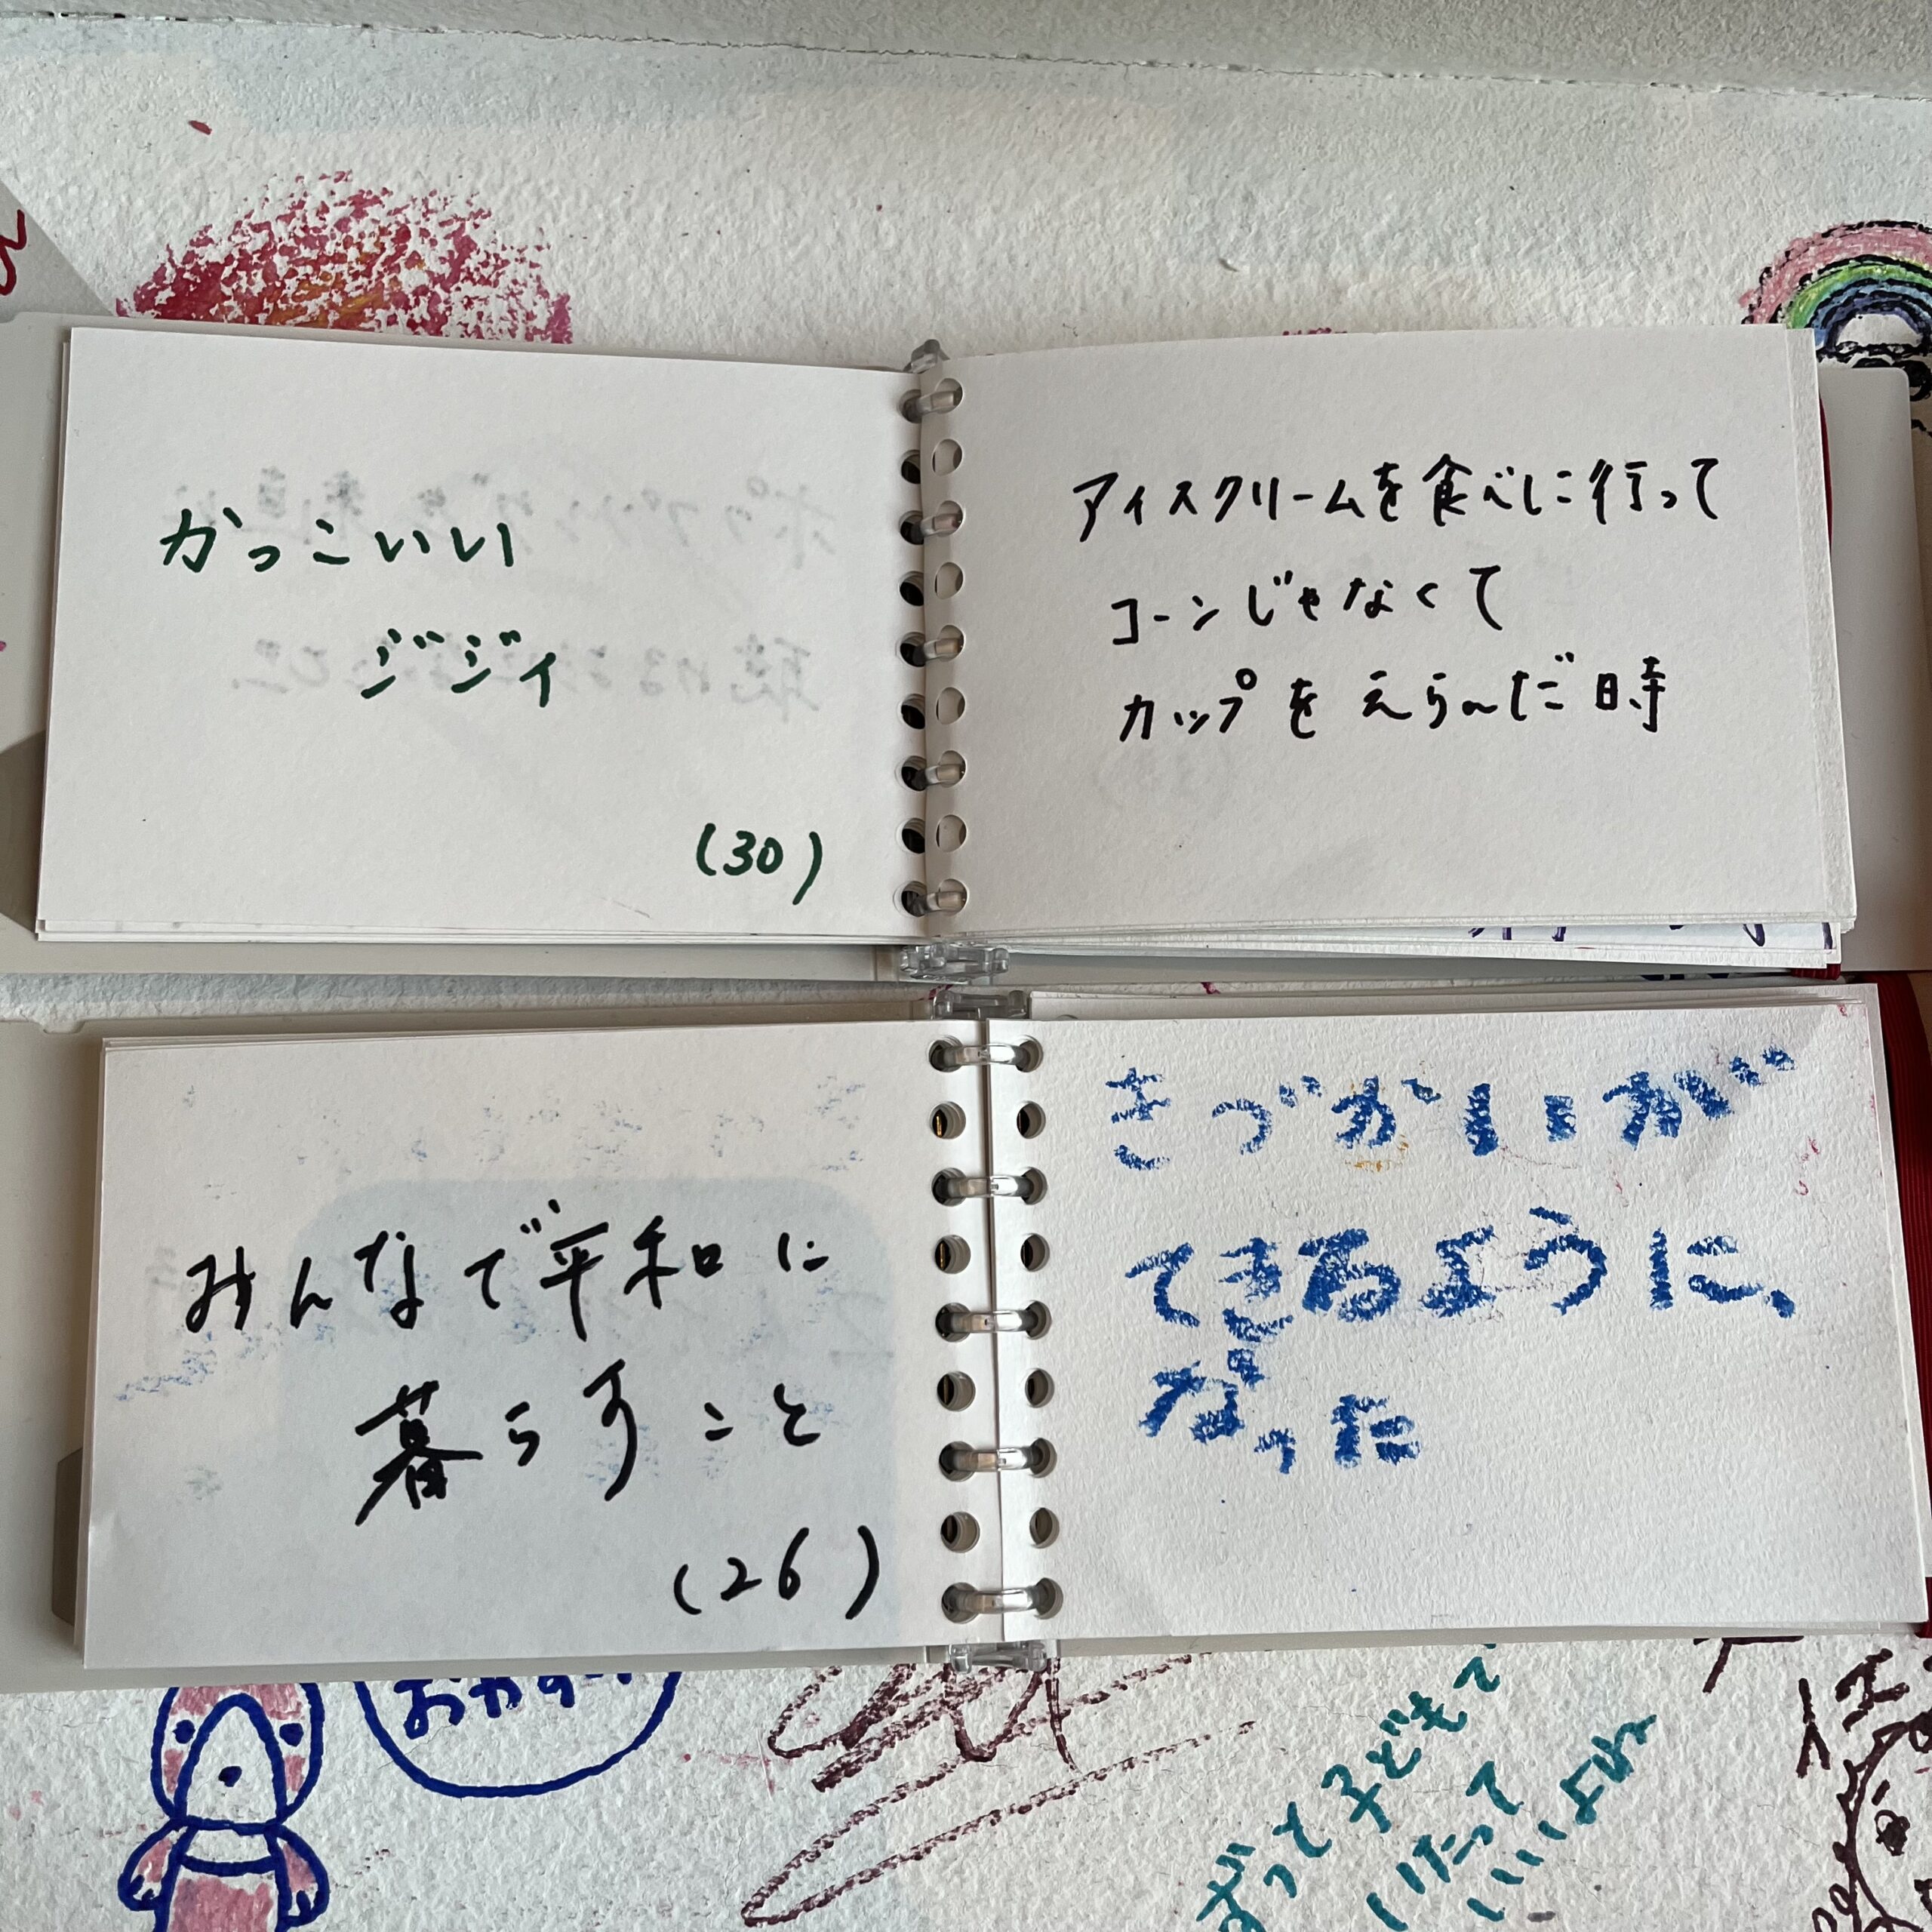 かっこいい
ジジィ
(30)
アイスクリームを食べに行って
コーンじゃなくて
カップをえらんだ時
みんなで平和に
暮らすこと
(26)
きづかいが
できるように、
なった
ずっと子どもで
いたって
いいよね